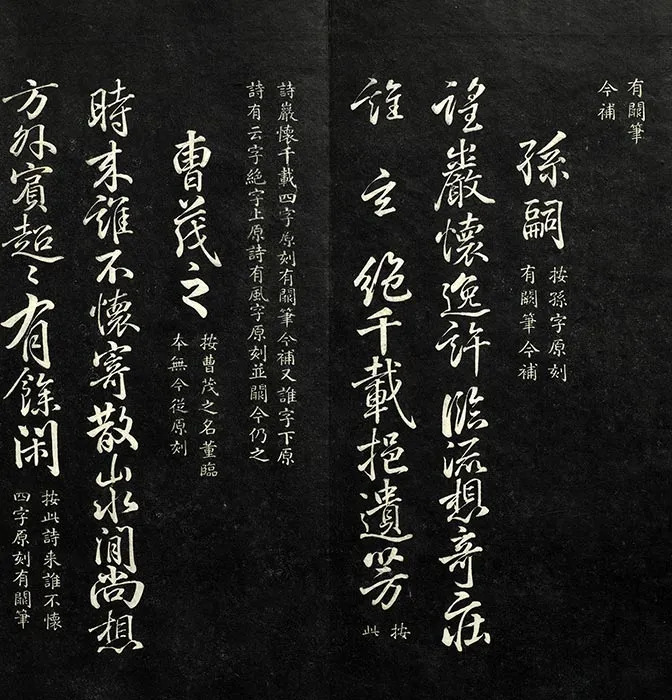 有闕筆
今補
孫嗣
按孫字原刻
有闕筆今補
望巖懷逸許臨流想奇莊
誰 真 絕千載挹遺芳
按
此
詩巖懷千載四字原刻有闕筆今補又誰字下原
詩有云字絕字上原詩有風字原刻並闕今仍之
曹茂之
按曹茂之名董臨
本無今從原刻
時来誰不懷寄散山水間尚想
方外賓超〻有餘閑
按此詩来誰不懷
四字原刻有闕筆